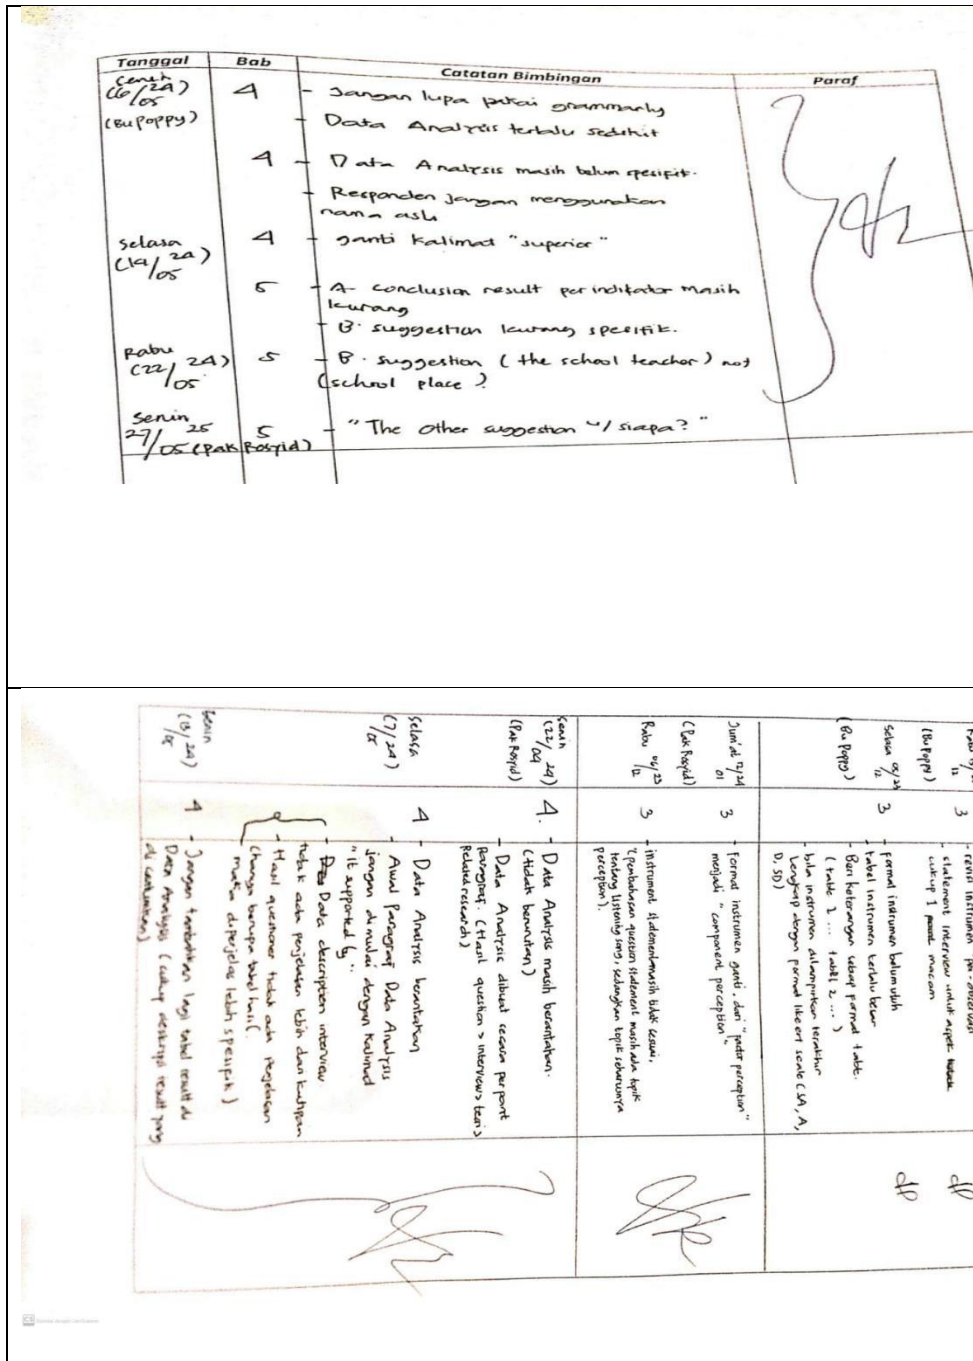 Tanggal Bab Catatan Bimbingan Paraf
(6/24)
/05 4 - Jangan lupa pakai grammarly
(Bu Poppy) - Data Analysis terlalu sedikit
4 - Data Analysis masih belum spesifik.
- Responden Jangan menggunakan
nama asli
Selasa 4 - ganti kalimat "superior"
(14/24)
/05
5 - A. conclusion result per indikator masih
kurang
- B. suggestion kurang spesifik.
Rabu 5 - B. suggestion (the school teacher) not
(22/24) (school place)
/05
Senin
27/05 (Pak Rosyid) 5 - "The other suggestion u/ siapa?"
3 - revisi instrumen
(Bu Poppy) - statement interview untuk aspek
12 cukup 1 macam
Selasa 05/23 3 - format instrumen belum utuh
12 - tabel instrumen terlalu besar
(Bu Poppy) - Beri keterangan setiap format table.
(table 1 .... tabel 2 ... )
- bila instrumen dilampirkan teratur
Lengkap dengan format likeert scale (SA, A,
D, SD)
Jum'at 12/24 3 - Format instrumen ganti, dari "factor perception"
01 menjadi "component perception"
(Pak Rosyid)
Rabu 06/23 3 - instrument statement masih tidak sesuai,
12 (pembahasan question statement masih ada topik
tentang listening song, sedangkan topik seharusnya
perception).
Senin 4. - Data Analysis masih berantakan.
(22/24) (tidak berurutan)
/04
(Pak Rosyid) - Data Analysis dibuat secara per point
paragraf. (Hasil question > interview > teori >
Related research)
Selasa 4 - Data Analysis berantakan
(7/24) - Awal paragraf Data Analysis
/05 jangan dimulai dengan kalimat
"it supported by ..
- Data description interview
tidak ada penjelasan lebih dan kutipan
- Hasil questioner tidak ada penjelasan
(hanya berupa tabel hasil.
maka diperjelas lebih spesifik)
Senin 4 - Jangan tambahkan lagi tabel result di
(13/24) Data Analysis (cukup deskripsi result yang
/05 di cantumkan)
CS